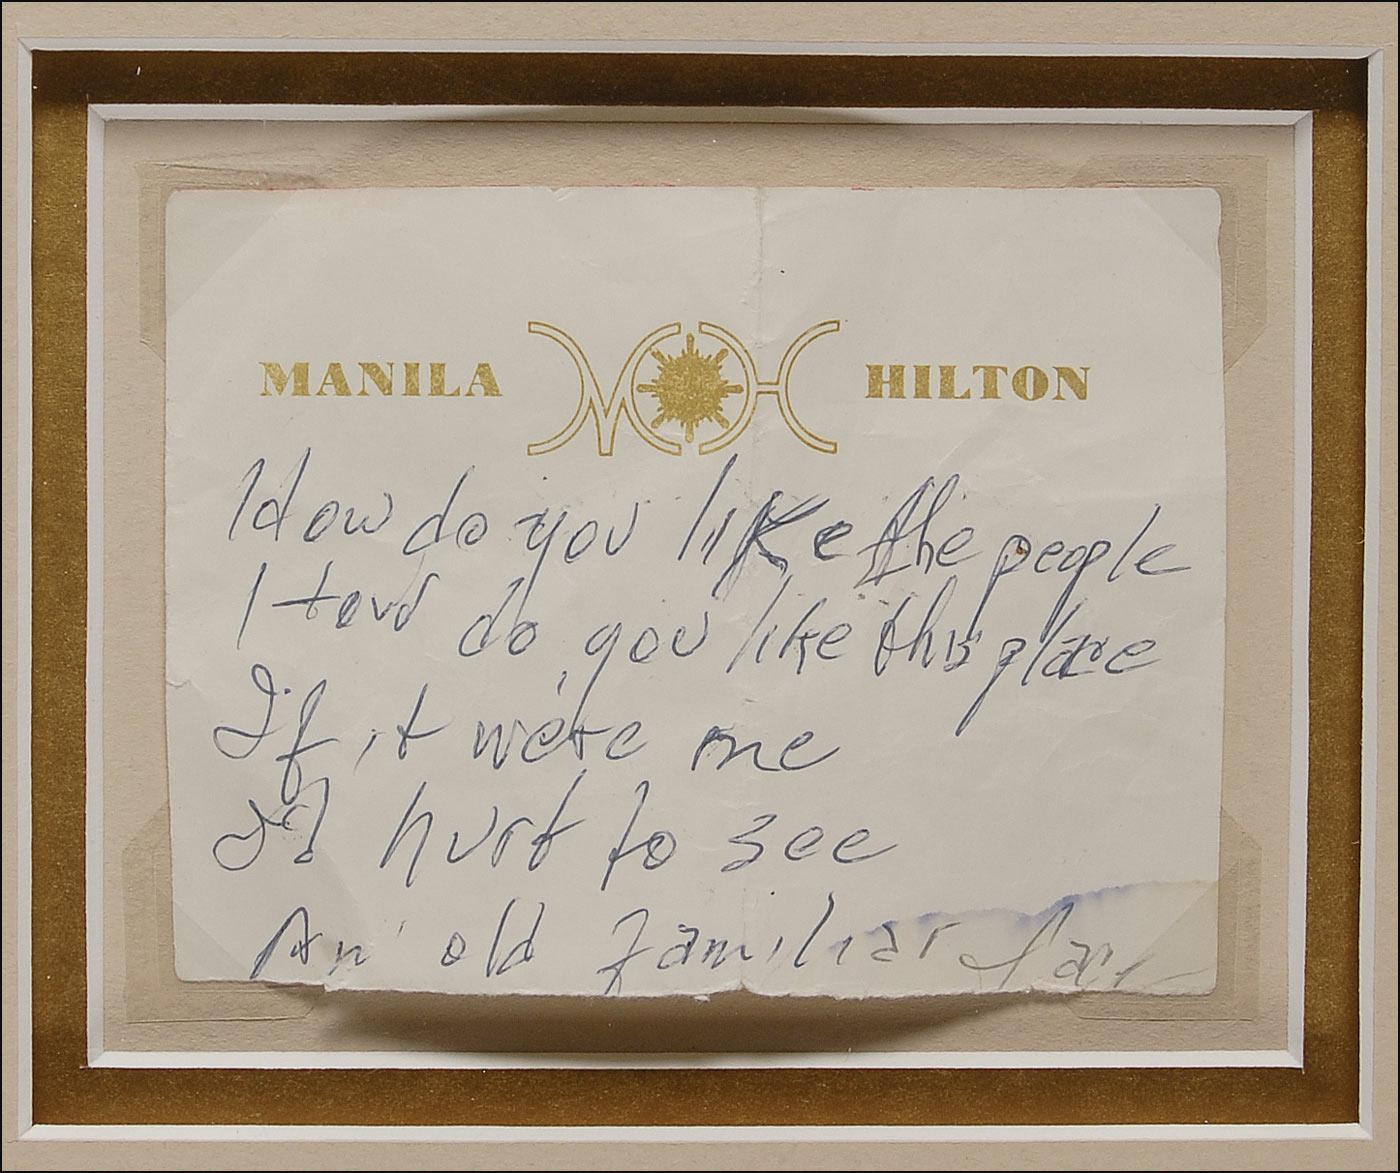 MANILA HILTON
How do you like the people
How do you like this place
If it were me
I'd hurt to see
An old familiar face